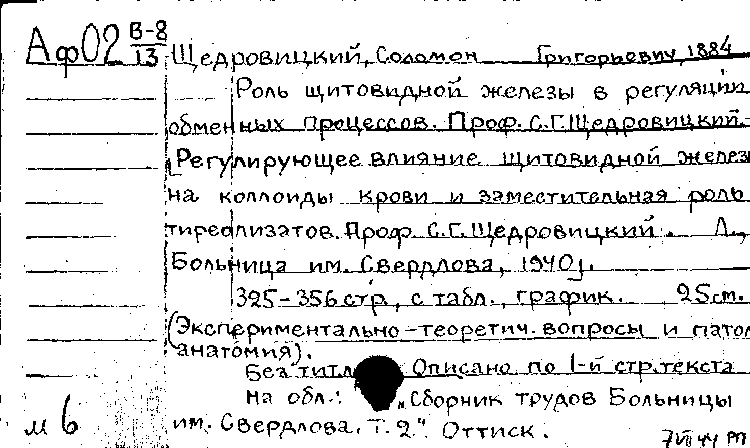 Аф02 В-8/13 Щедровицкий, Соломон Григорьевич, 1884
Роль щитовидной железы в регуляции
обменных процессов. Проф. С.Г. Щедровицкий.
(Регулирующее влияние щитовидной желез
на коллоиды крови и заместительная роль
тиреолизатов. Проф. С.Г. Щедровицкий. Л.,
Больница им. Свердлова, 1940г.
325-356 стр., с табл., график. 25 см.
(Экспериментально-теоретич. вопросы и патол
анатомия).
Без титл. Описано по 1-й стр. текста
На обл.: "Сборник трудов Больницы
м 6 им. Свердлова. Т. 2". Оттиск.